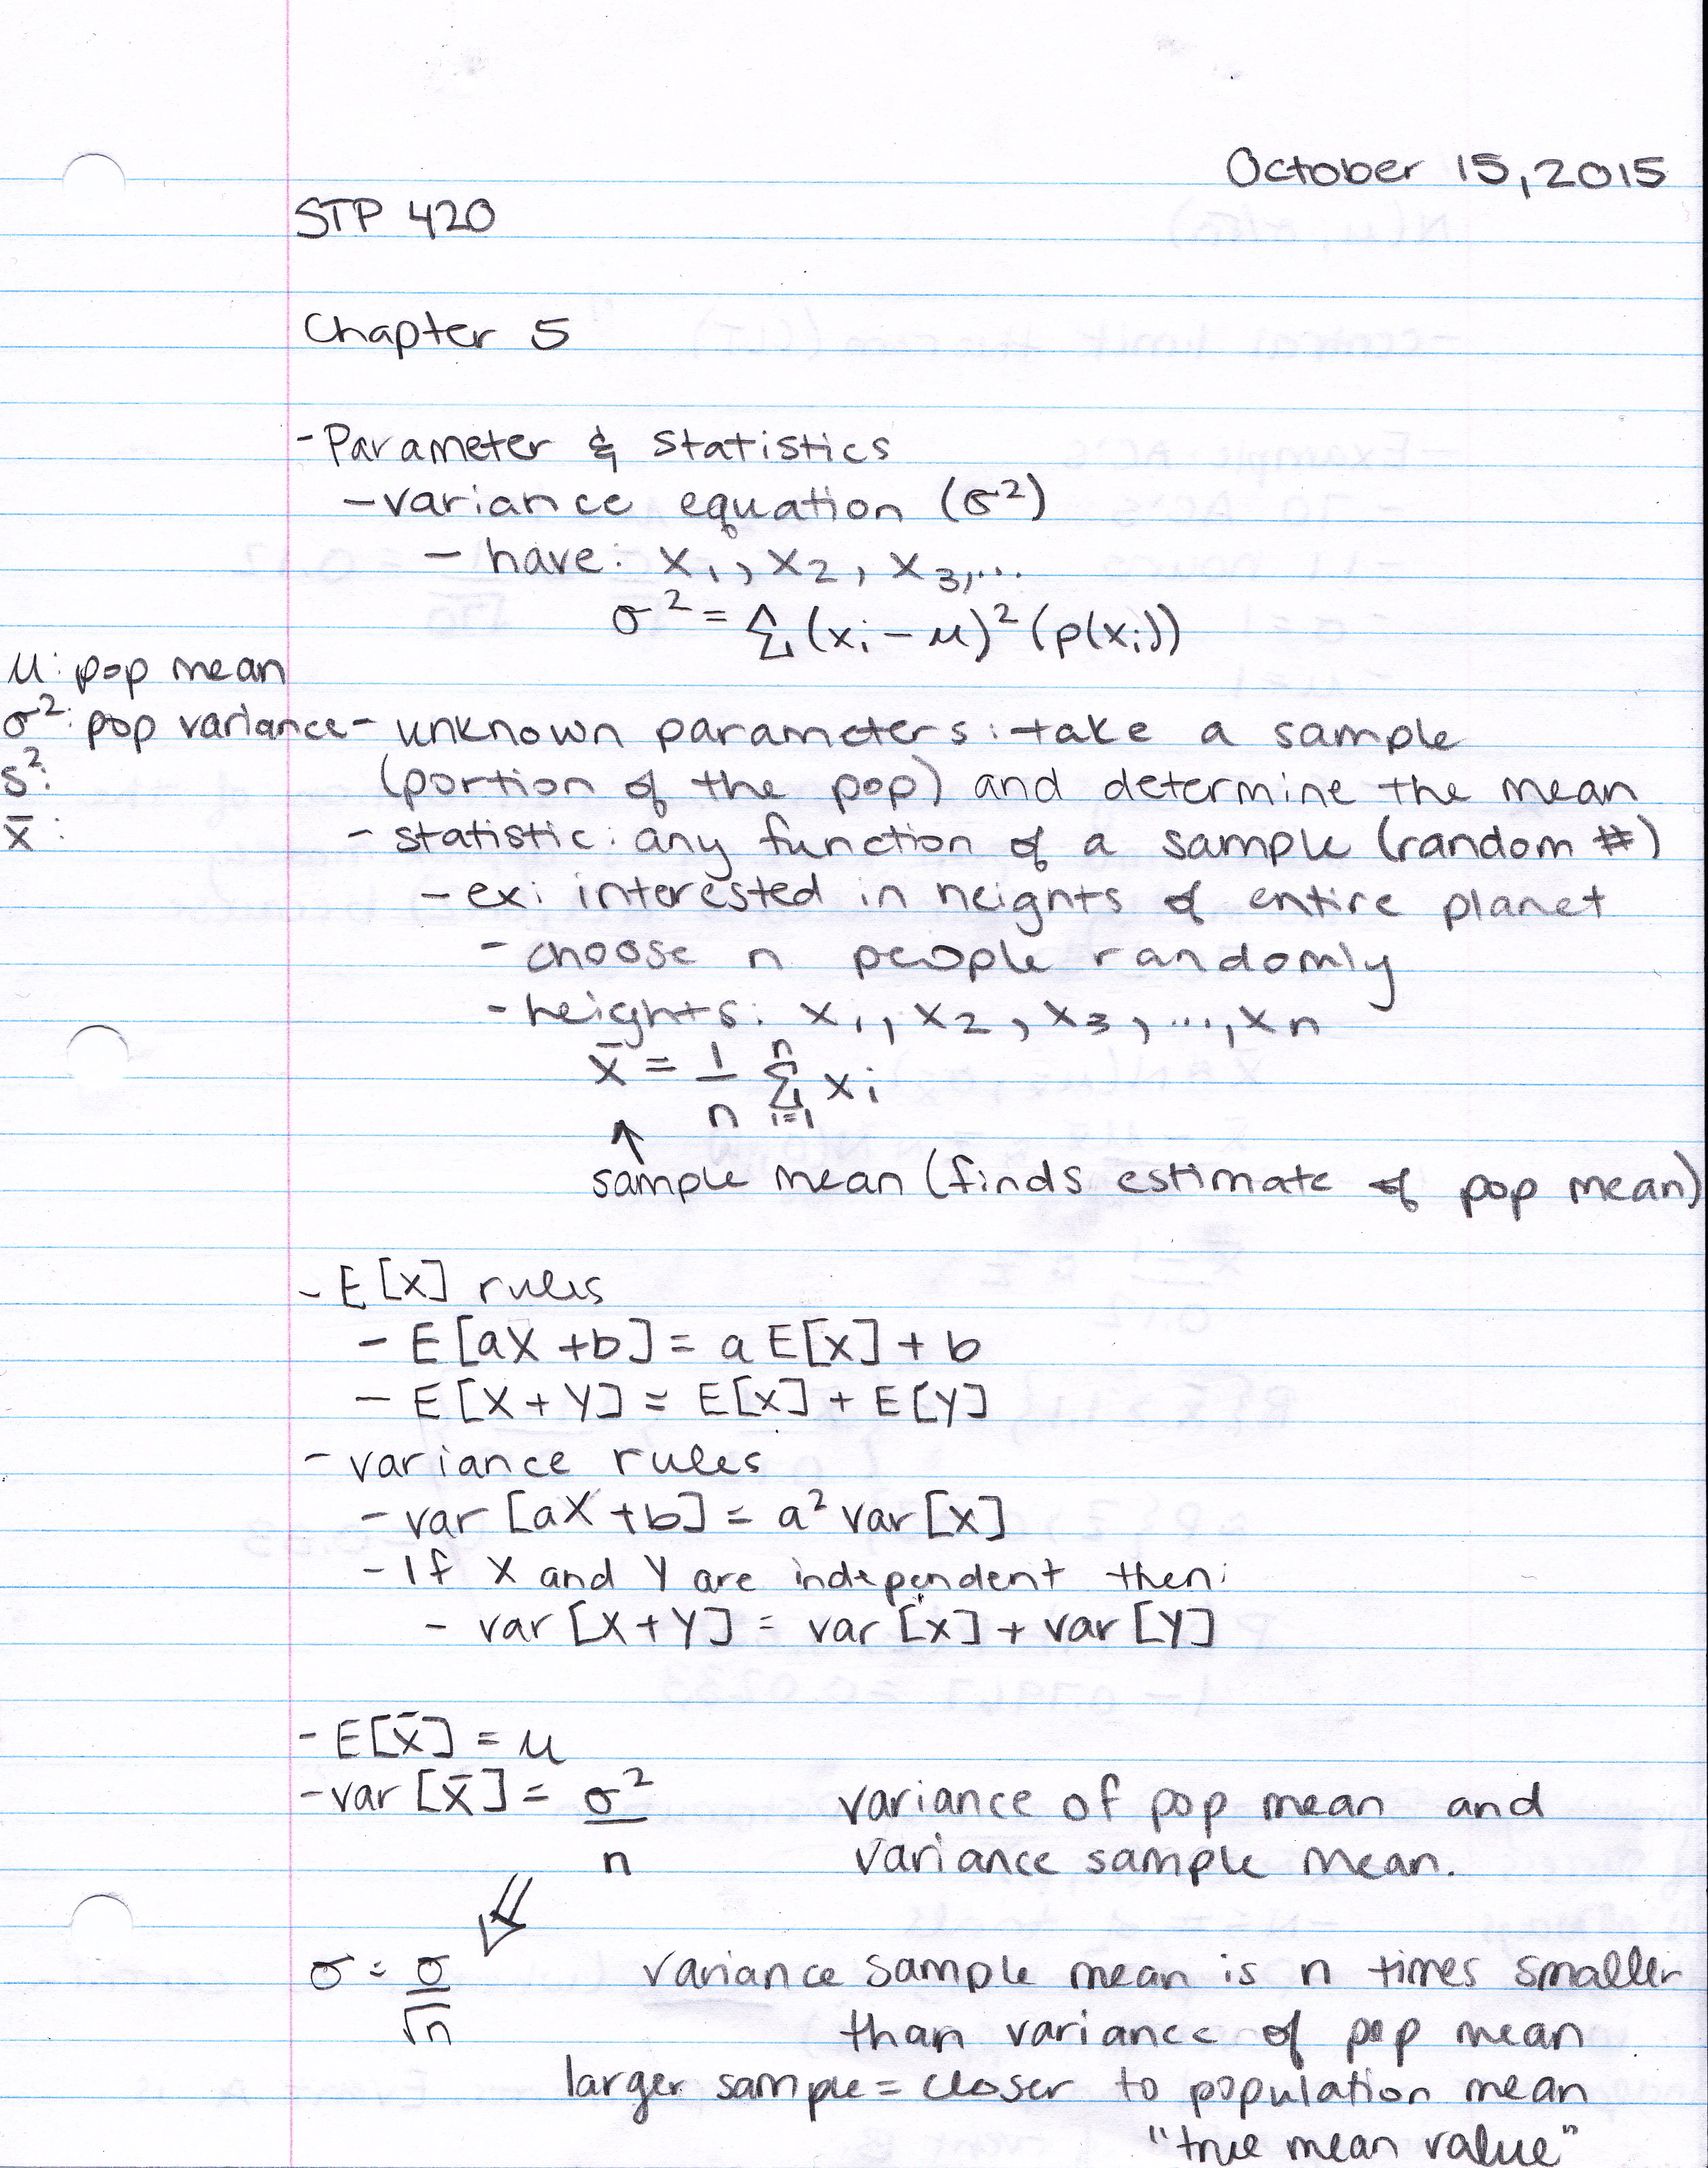 October 15, 2015
STP 420
Chapter 5
- Parameter & statistics
- variance equation (σ²)
- have: x₁, x₂, x₃,...
σ² = Σ(xᵢ - μ)² (p(xᵢ))
μ: pop mean
σ²: pop variance - unknown parameters: take a sample
s²: (portion of the pop) and determine the mean
x̄: - statistic: any function of a sample (random #)
- ex: interested in heights of entire planet
- choose n people randomly
- heights: x₁, x₂, x₃, ..., xn
x̄ = 1/n Σ i=1 n xᵢ
↑
sample mean (finds estimate of pop mean)
- E[x] rules
- E[aX + b] = a E[x] + b
- E[X + Y] = E[x] + E[Y]
- variance rules
- var [aX + b] = a² var [x]
- If X and Y are independent then:
- var [X + Y] = var [x] + var [Y]
- E[x̄] = μ
- var [x̄] = σ²/n variance of pop mean and
variance sample mean.
σ = σ/√n variance sample mean is n times smaller
than variance of pop mean
larger sample = closer to population mean
"true mean value"